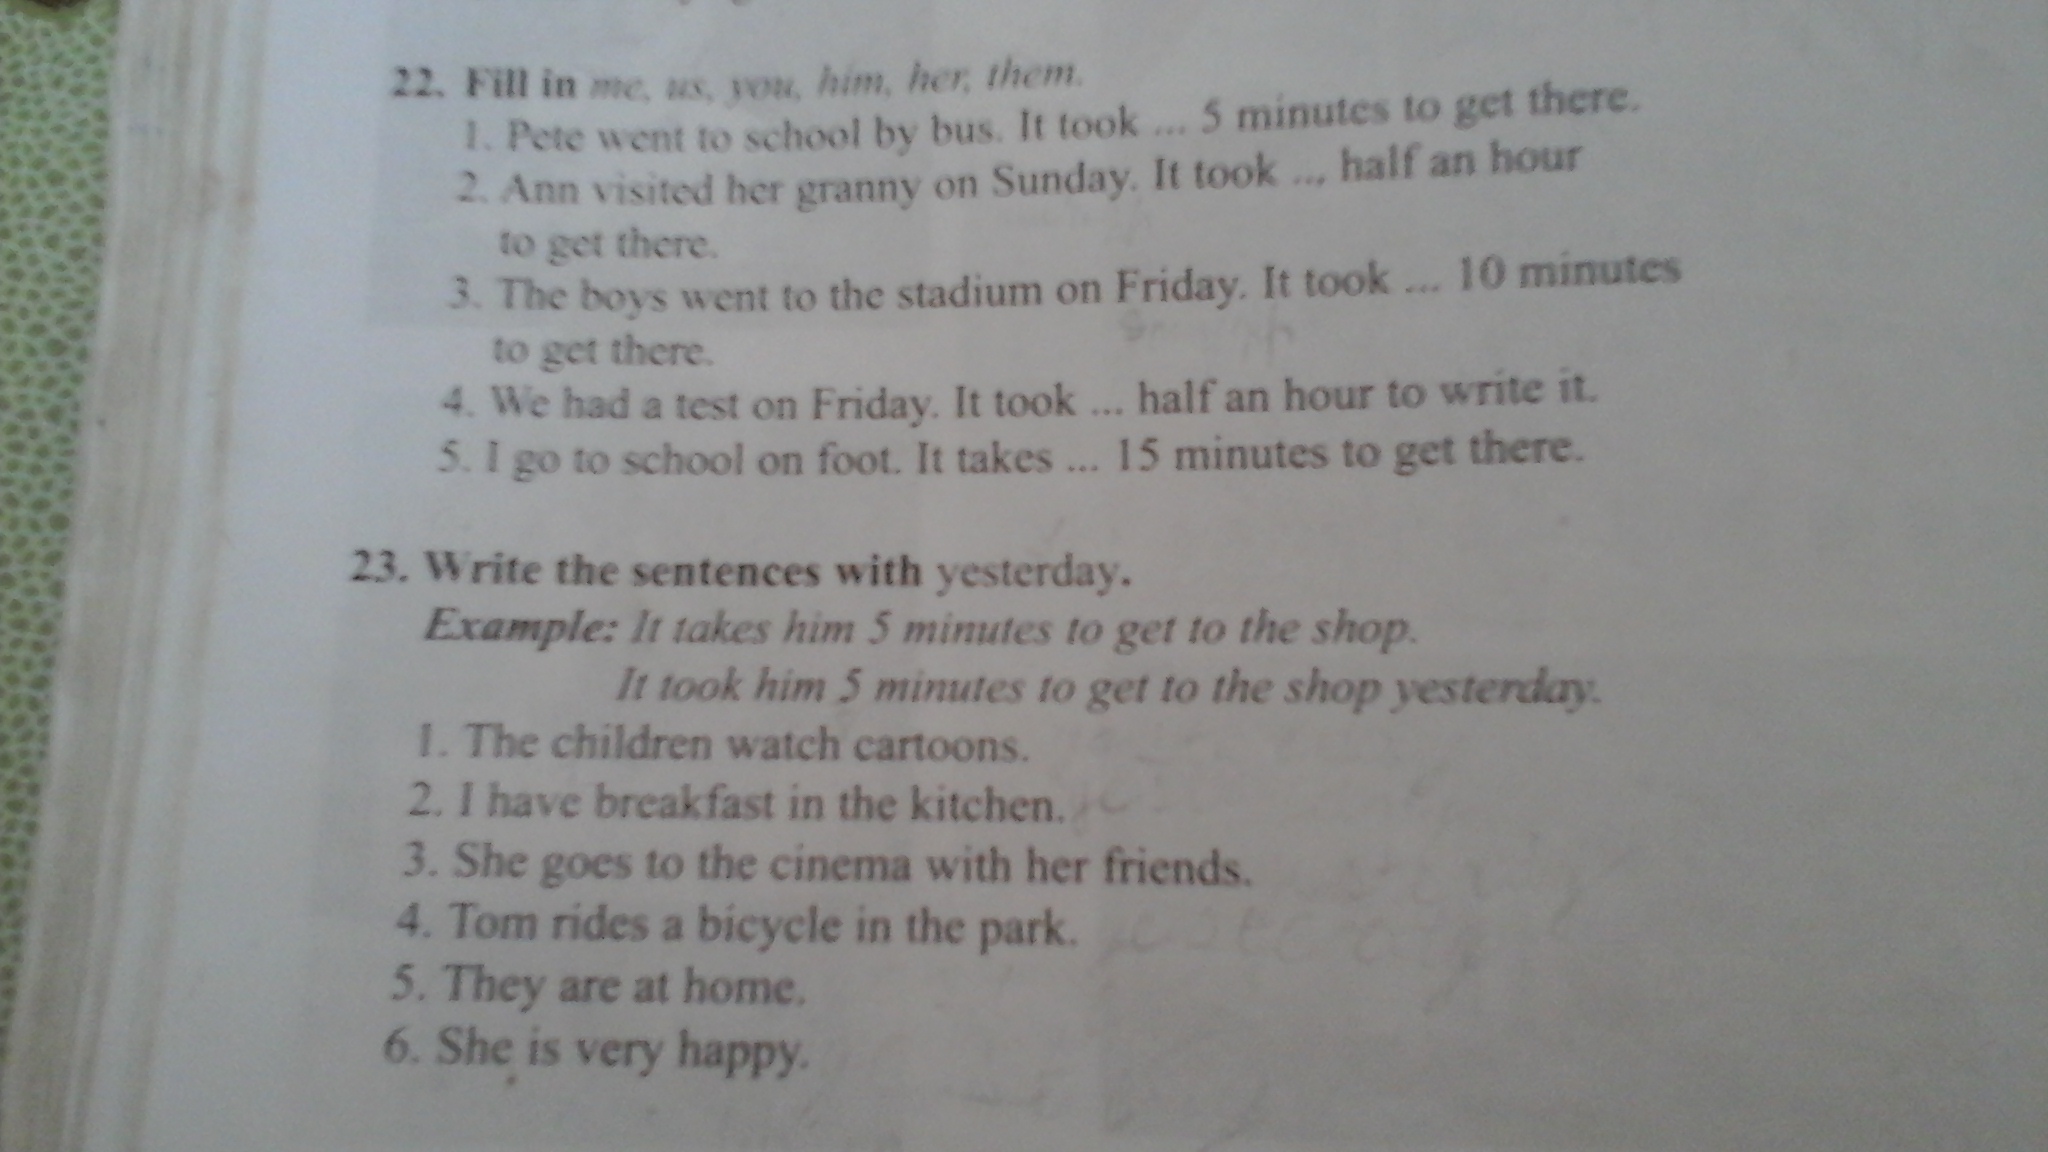 22. Fill in me, us, you, him, her, them.
1. Pete went to school by bus. It took ... 5 minutes to get there.
2. Ann visited her granny on Sunday. It took ... half an hour
to get there.
3. The boys went to the stadium on Friday. It took ... 10 minutes
to get there.
4. We had a test on Friday. It took ... half an hour to write it.
5. I go to school on foot. It takes ... 15 minutes to get there.
23. Write the sentences with yesterday.
Example: It takes him 5 minutes to get to the shop.
It took him 5 minutes to get to the shop yesterday.
1. The children watch cartoons.
2. I have breakfast in the kitchen.
3. She goes to the cinema with her friends.
4. Tom rides a bicycle in the park.
5. They are at home.
6. She is very happy.